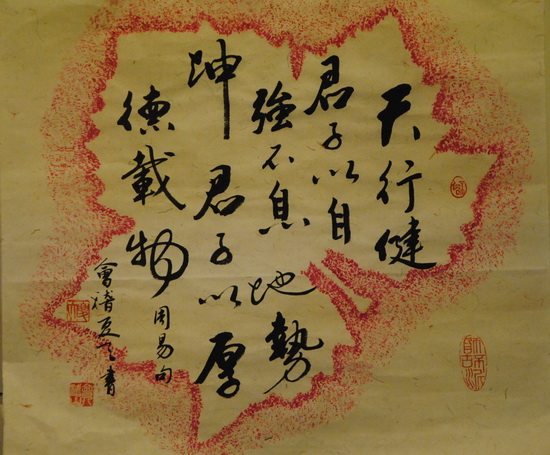 天行健
君子以自
強不息地勢
坤君子以厚
德載物
周易句
會稽
書